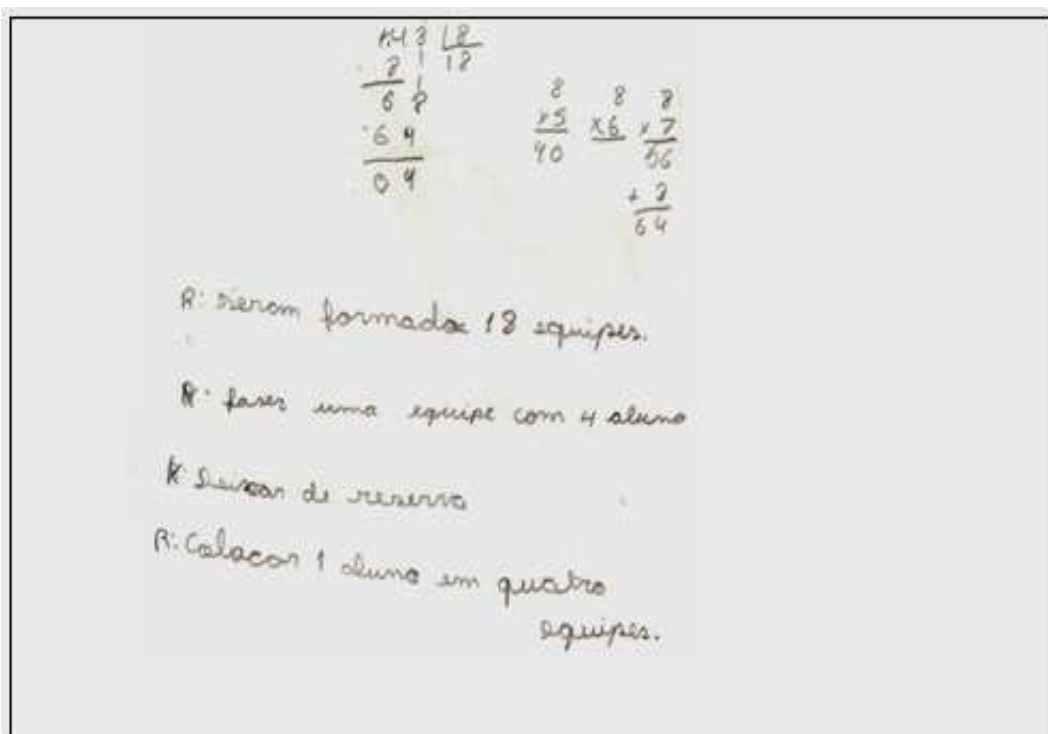 148 |8
8 18
68
64
04
8 8 8
x5 x6 x7
40 56
+ 8
64
R: Sierom formadas 18 equipes.
R: fazer uma equipe com 4 aluno
R: Deixar de reserva
R: Colacar 1 aluno em quatro
equipes.